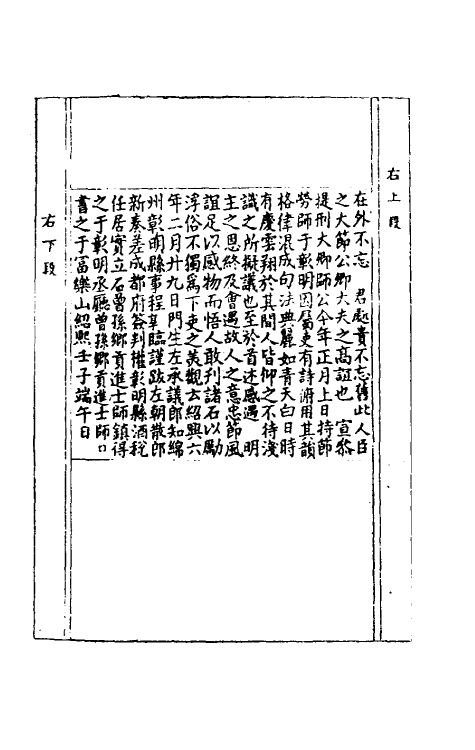 右上段
在外不忘　君處貴不忘舊此人臣
之大節公卿大夫之高誼也　宣黎
提刑大卿師公今年正月上日持節
勞師于彰明因屬吏有詩俯用其韻
格律混成句法典麗如青天白日時
有慶雲翔於其間人皆仰之不待淺
識之所擬議也至於首述感遇　明
主之恩終及會遇故人之意忠節風
誼足以感物而悟人敢刊諸石以勵
浮俗不獨為下吏之美觀云紹興六
年二月廿九日門生左承議郎知綿
州彰明縣事程皋臨謹跋左朝散郎
新奏差成都府簽判權彰明縣酒稅
任居實立石曾孫鄉貢進士師鎮得
之于彰明丞廳曾孫鄉貢進士師□
書之于富樂山紹熙壬子端午日
右下段